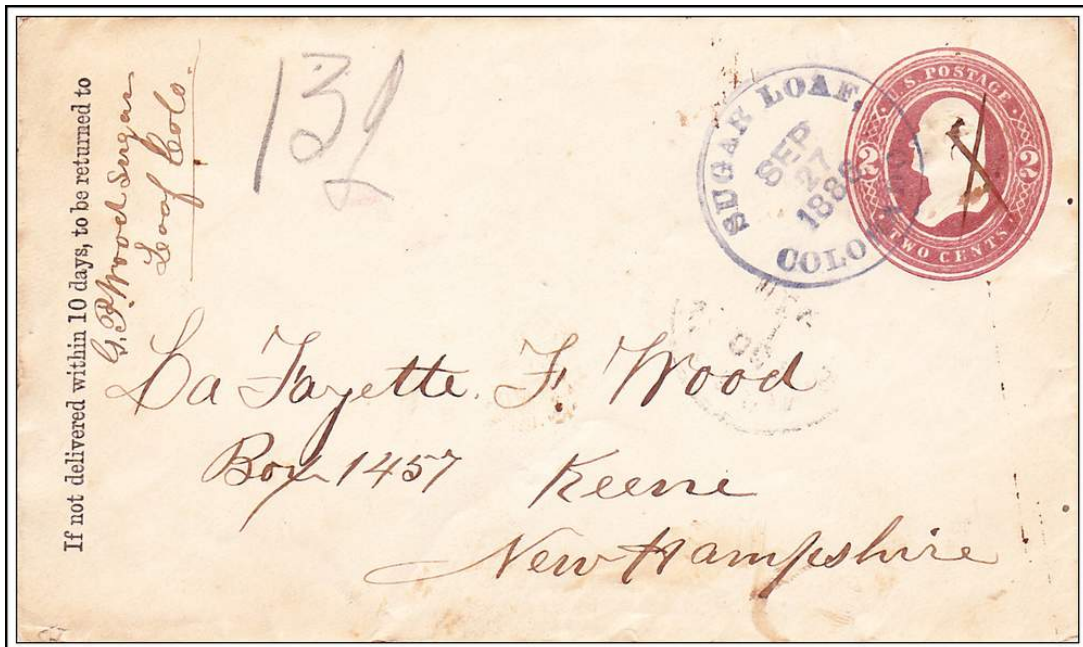 If not delivered within 10 days, to be returned to
G. P. Wood Sugar
Loaf Colo.
SUGAR LOAF,
SEP
27
1886
U.S. POSTAGE
2 2
TWO CENTS
La Fayette. F. Wood
Box 1457 Keene
New Hampshire